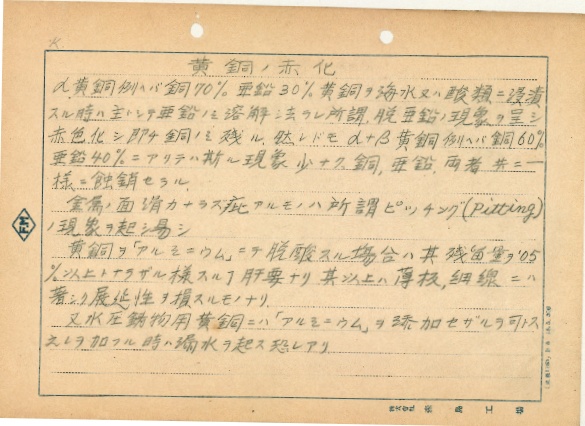 黄銅ノ赤化
α黄銅例ヘバ銅70% 亜鉛30% 黄銅ヲ海水又ハ酸類ニ浸漬
スル時ハ主トシテ亜鉛ノミ溶解シ去ラレ所謂脱亜鉛ノ現象ヲ呈シ
赤色化シ即チ銅ノミ残ル. 然レドモ α+β 黄銅例ヘバ銅60%
亜鉛40%ニアリテハ斯ル現象少ナク銅, 亜鉛, 両者共ニ一
様ニ蝕銷セラル.
金属ノ面滑カナラズ疵アルモノハ所謂ピッチング(Pitting)
ノ現象ヲ起シ易シ
黄銅ヲ「アルミニウム」ニテ脱酸スル場合ハ其残留量ヲ.05
%以上トナラザル様スルヿ肝要ナリ 其以上ハ薄板, 細線ニハ
著シク展延性ヲ損スルモノナリ.
又水圧動物用黄銅ニハ「アルミニウム」ヲ添加セザルヲ可トス
之レヲ加フル時ハ漏水ヲ起ス恐レアリ
FM